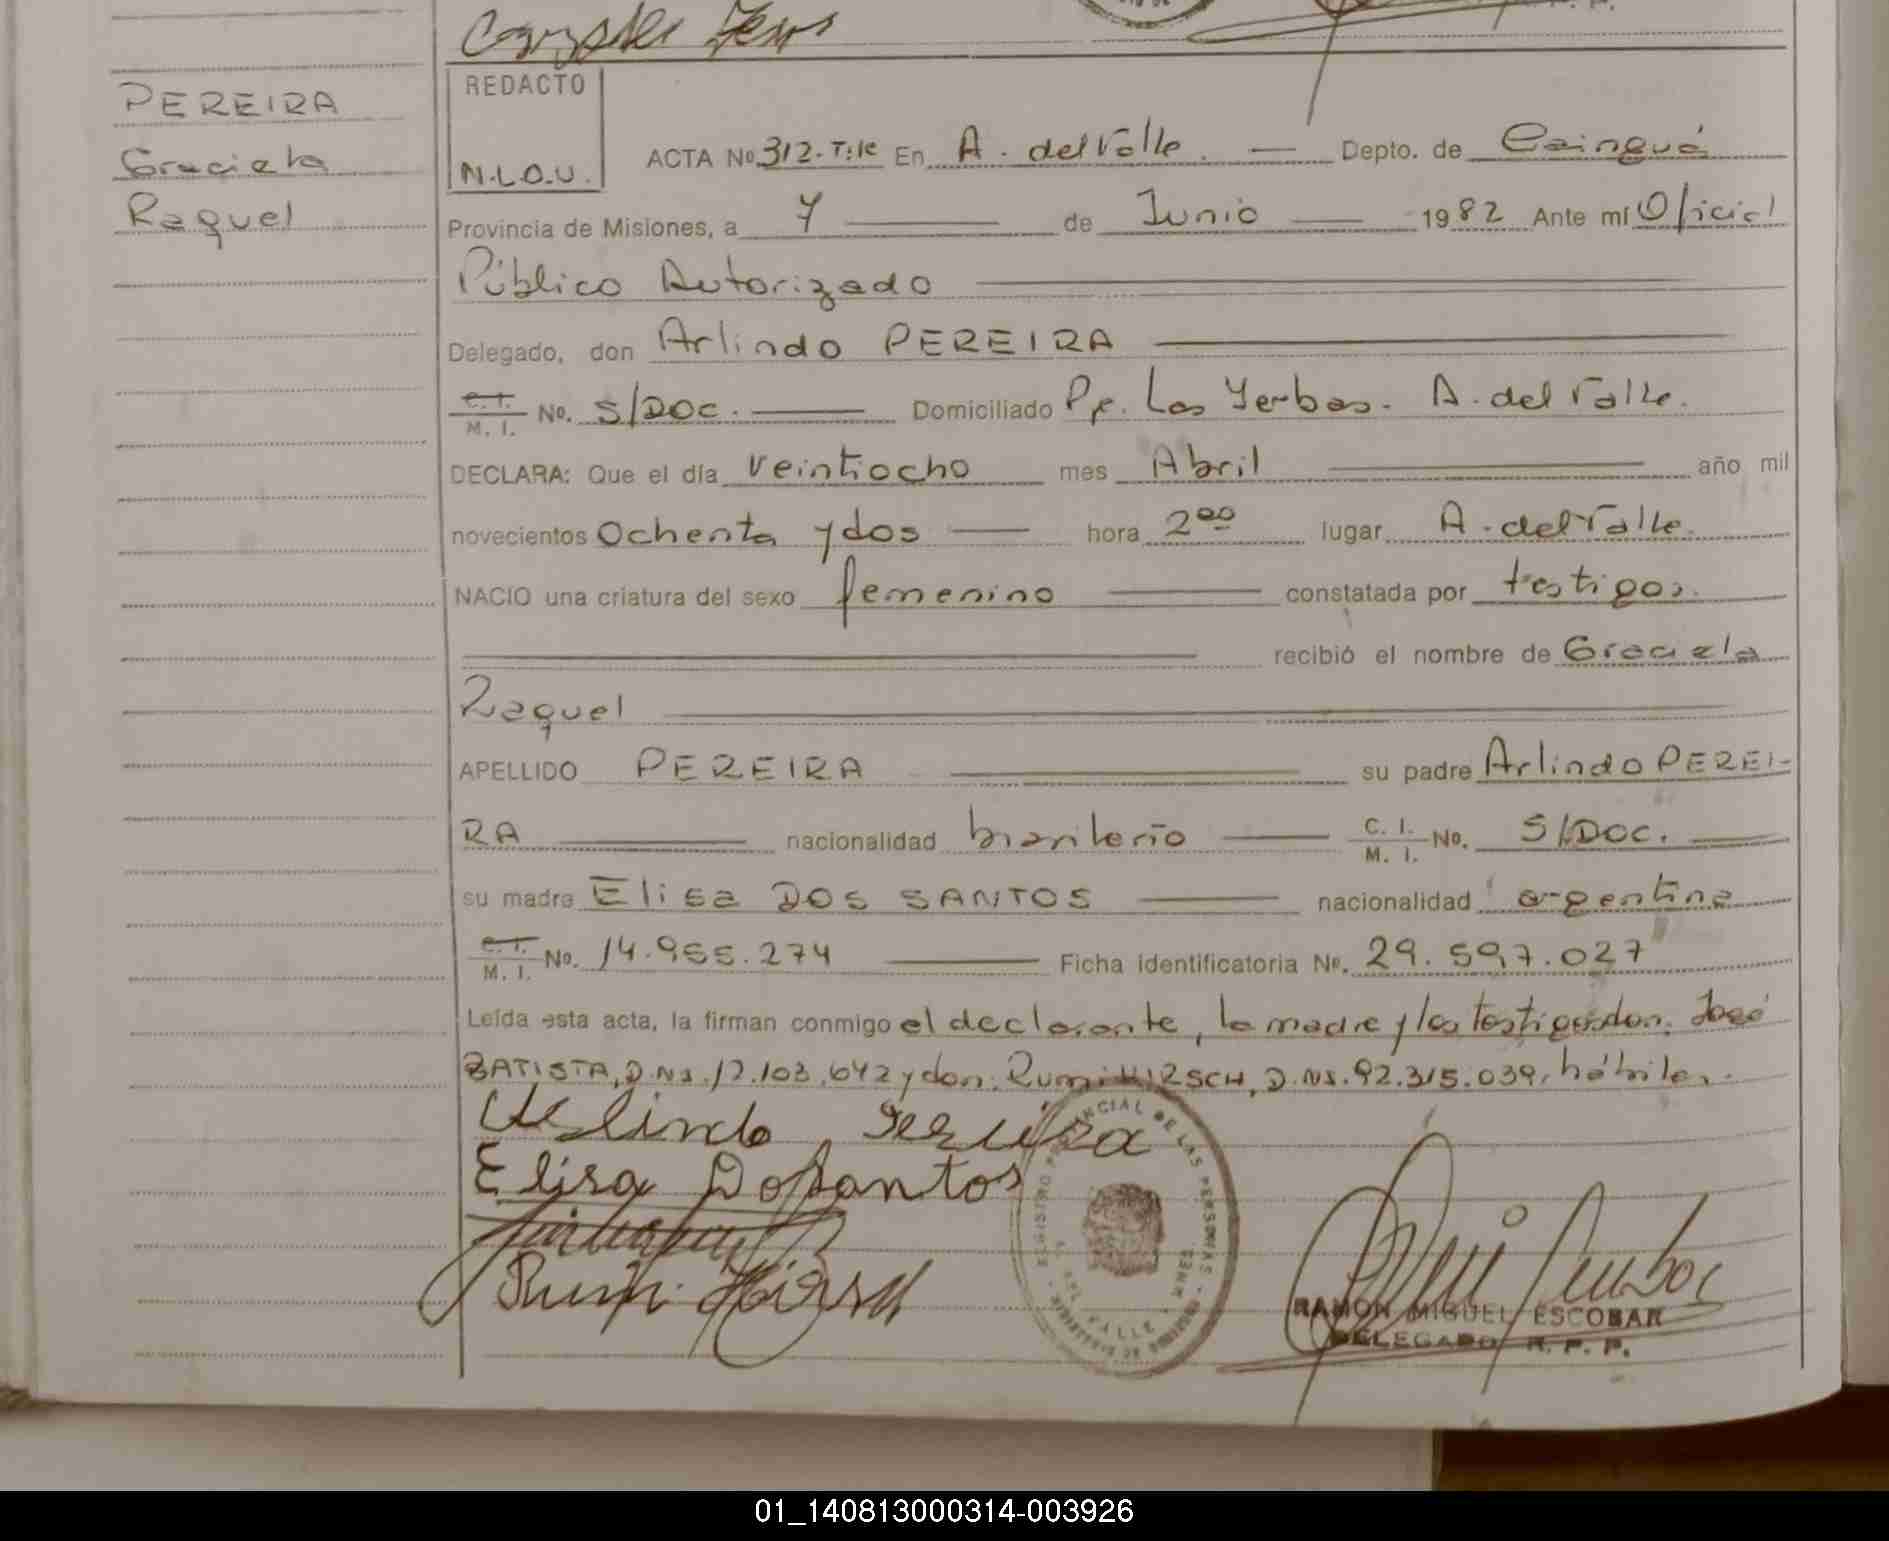 REDACTO
N.L.O.U.
PEREIRA
Graciela
Raquel
ACTA No. 312. T:1e En A. del Valle. Depto. de Cainguá
Provincia de Misiones, a 7 de Junio 1982 Ante mí Oficial
Público Autorizado
Delegado, don Arlindo PEREIRA
C. I. M. I. No. S/DOC. Domiciliado Pje. Las Yerbas. A. del Valle.
DECLARA: Que el día veintiocho mes Abril año mil
novecientos Ochenta y dos hora 2 00 lugar A. del Valle.
NACIO una criatura del sexo femenino constatada por testigos.
recibió el nombre de Graciela
Raquel
APELLIDO PEREIRA su padre Arlindo PEREI-
RA nacionalidad brasileño C. I. M. I. No. S/DOC.
su madre Elisa DOS SANTOS nacionalidad argentina
C. I. M. I. No. 14.955.274 Ficha identificatoria No. 29.597.027
Leída esta acta, la firman conmigo el declarante, la madre y los testigos don. José
BATISTA, D.NI. 17.103.642 y don. Rumi HIRSCH, D.NI. 92.315.039, hábiles.
Arlindo Pereira
Elisa Dosantos
Rumi Hirsch
REGISTRO PROVINCIAL DE LAS PERSONAS
VALLE
RAMON MIGUEL ESCOBAR
DELEGADO R. P. P.
01_140813000314-003926